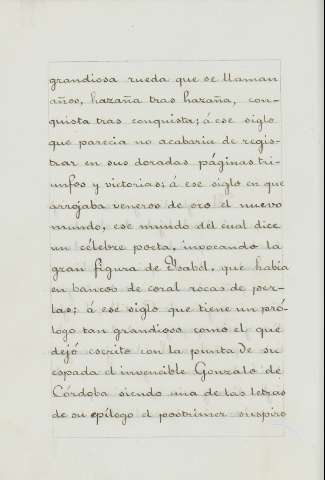 grandiosa rueda que se llaman
años, hazaña tras hazaña, con-
quista tras conquista; á ese siglo
que parecia no acabaria de regis-
trar en sus doradas páginas tri-
unfos y victorias; á ese siglo en que
arrojaba veneros de oro el nuevo
mundo, ese mundo del cual dice
un célebre poeta, invocando la
gran figura de Ysabel, que habia
en bancos de coral rocas de per-
las; á ese siglo que tiene un pró-
logo tan grandioso como el que
dejó escrito con la punta de su
espada el invencible Gonzalo de
Córdoba siendo una de las letras
de su epílogo el postrimer suspiro